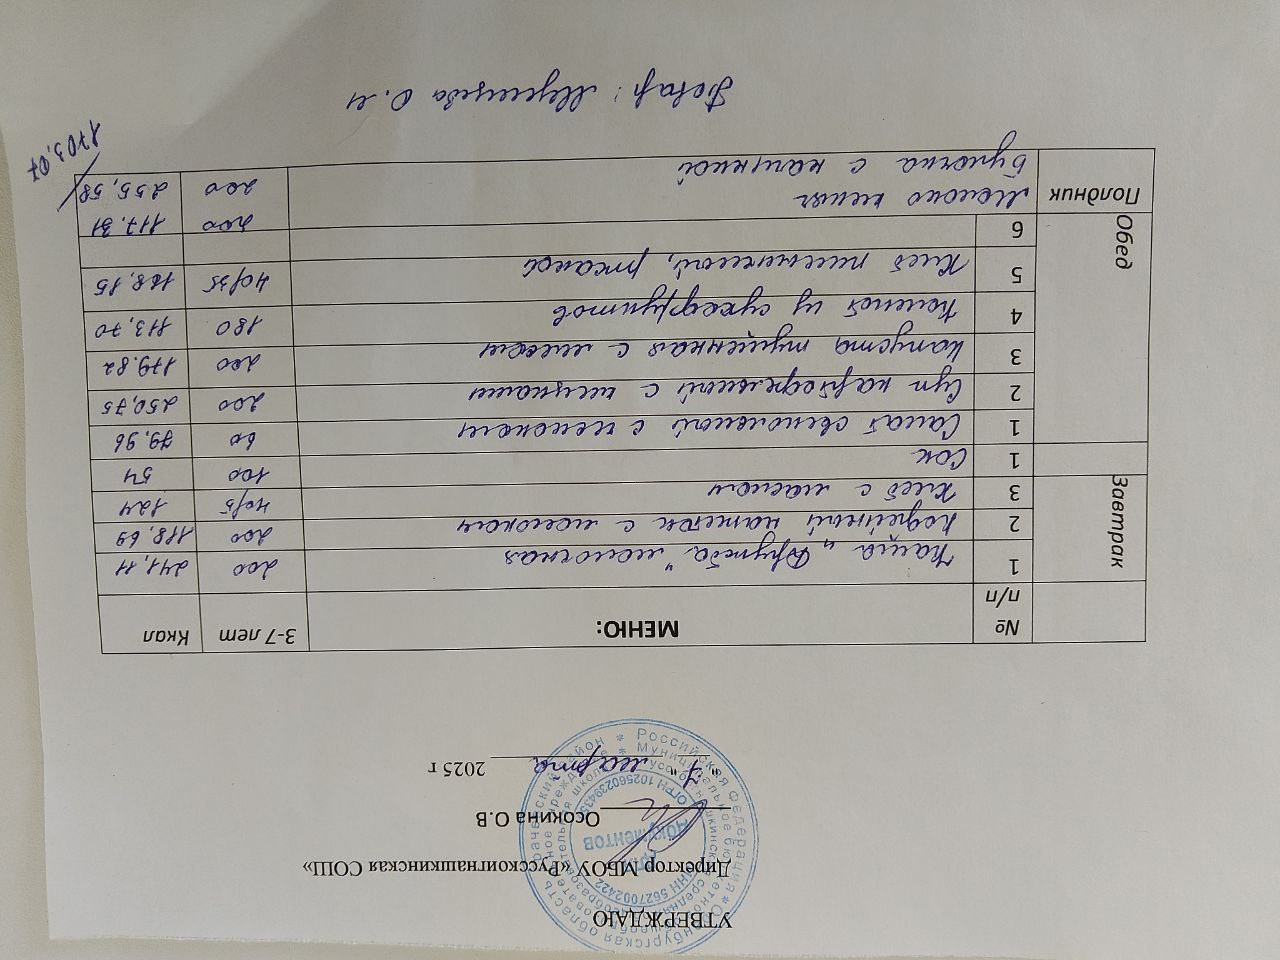 УТВЕРЖДАЮ
Директор МБОУ «Русскоигнашкинская СОШ»
Осокина О.В
"7" марта 2025 г
Российская Федерация * Оренбургская область
ОГРН 1025602394435
ИНН 5627002422
Для документов
№ п/п МЕНЮ: 3-7 лет Ккал
Завтрак
1 Каша "Дружба" молочная 200 241,11
2 Кофейный напиток с молоком 200 118,69
3 Хлеб с маслом 40/5 124
1 Сок 100 54
Обед
1 Салат свекольный с чесноком 60 79,96
2 Суп картофельный с клецками 200 250,75
3 Капуста тушенная с мясом 200 179.82
4 Компот из сухофруктов 180 113,70
5 Хлеб пшеничный, ржаной 40/35 168,15
6
Полдник
Молоко кипяч 200 117.31
Булочка с начинкой 200 255,58
1703,07
Повар: О.И